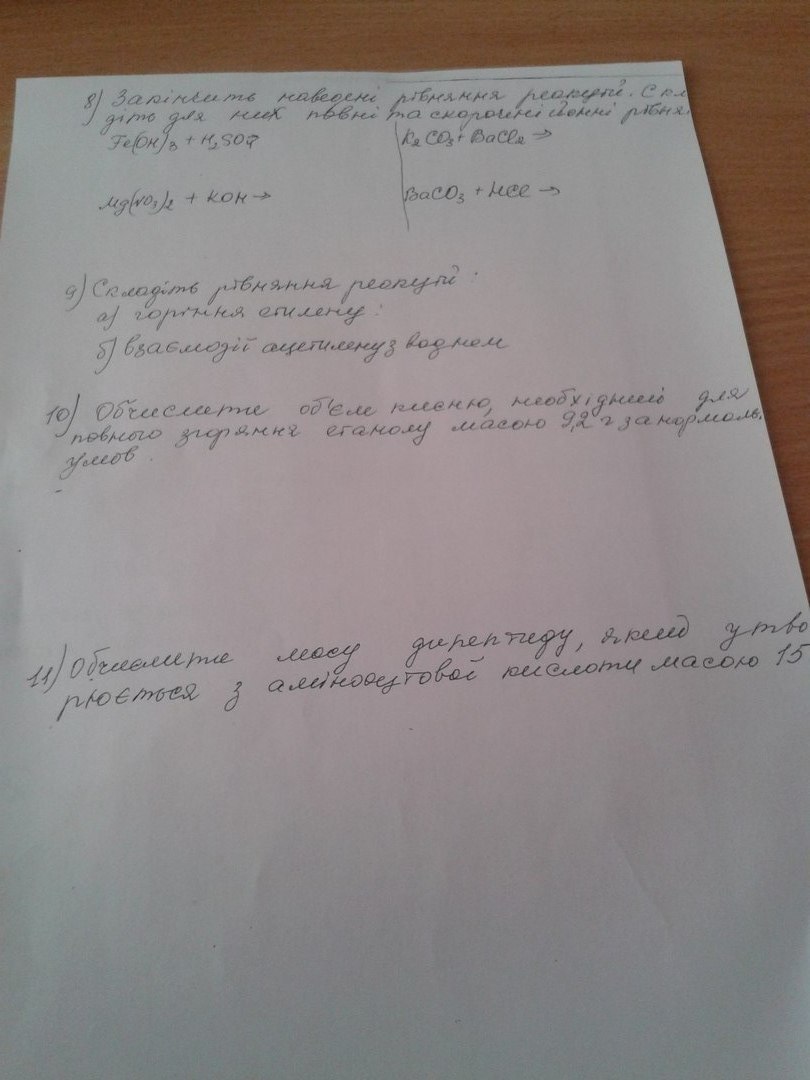 8) Закінчить наведені рівняння реакцій. Скл
діть для них повні та скорочені йонні рівня
Fe(OH)3 + H2SO4
K2CO3 + BaCl2 →
Mg(NO3)2 + KOH →
BaCO3 + HCl →
9) Складіть рівняння реакцій:
а) горіння етилену:
б) взаємодії ацетилену з воднем
10) Обчислити об'єм кисню, необхідний для
повного згоряння етанолу масою 9,2 г за нормаль.
умов.
11) Обчислити масу дипептиду, який утво
рюється з аміnооцтової кислоти масою 15